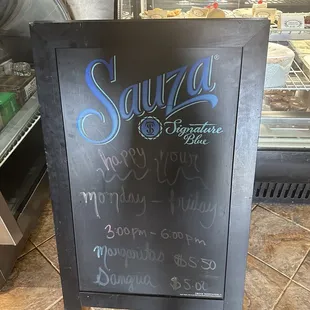 Sauza
S
Signature
Blue
happy hour
monday - friday
3:00pm - 6:00pm
Margaritas $5.50
Sangria $5.00